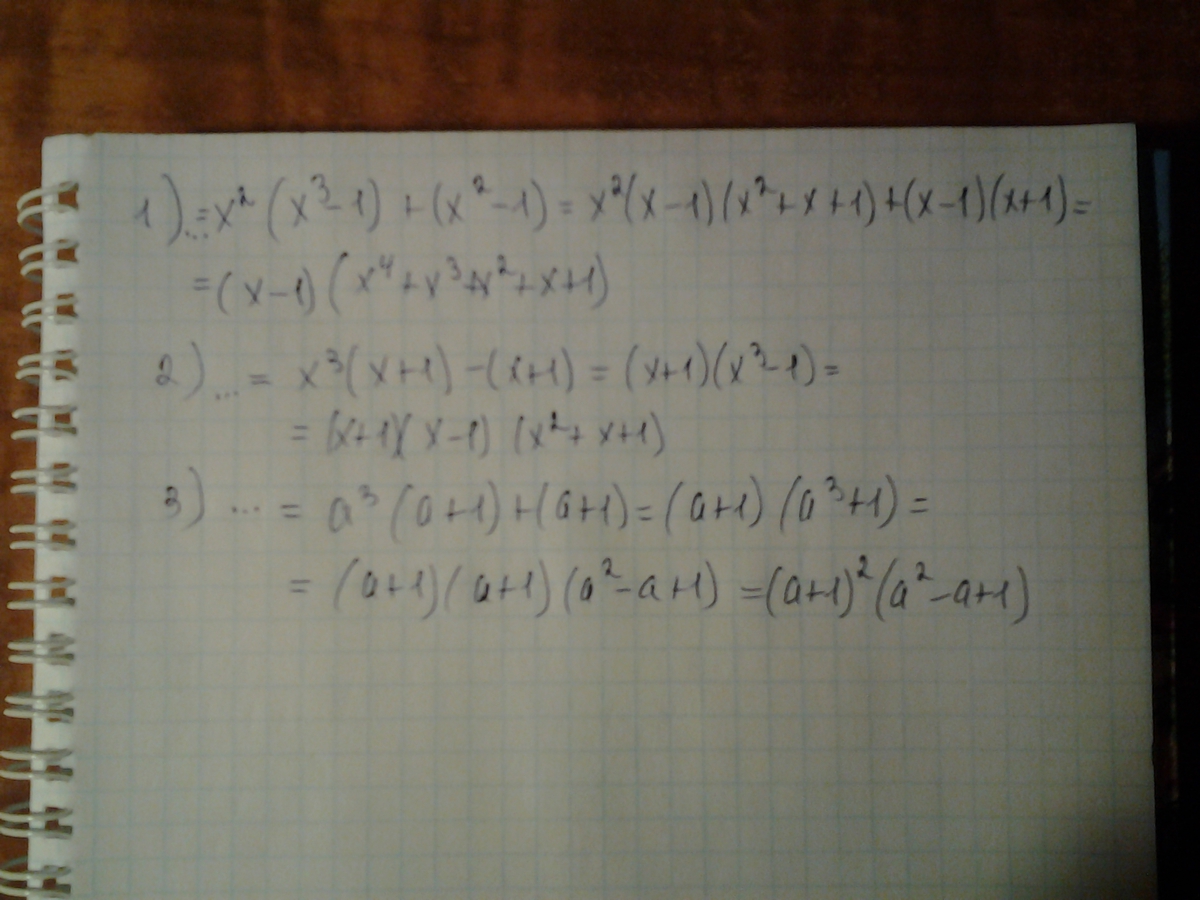 1)...=x²(x³-1)+(x²-1)=x²(x-1)(x²+x+1)+(x-1)(x+1)=
=(x-1)(x⁴+x³+x²+x+1)
2)...=x³(x+1)-(x+1)=(x+1)(x³-1)=
=(x+1)(x-1)(x²+x+1)
3)...=a³(a+1)+(a+1)=(a+1)(a³+1)=
=(a+1)(a+1)(a²-a+1)=(a+1)²(a²-a+1)